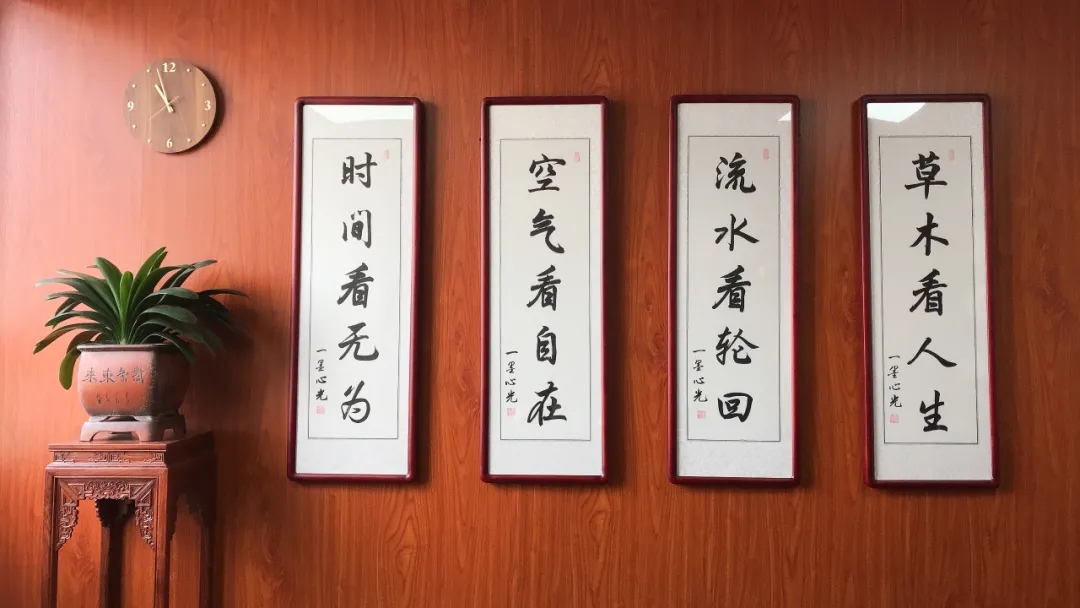 12
9 3
6
草木看人生
一墨心光
流水看轮回
一墨心光
空气看自在
一墨心光
时间看无为
一墨心光